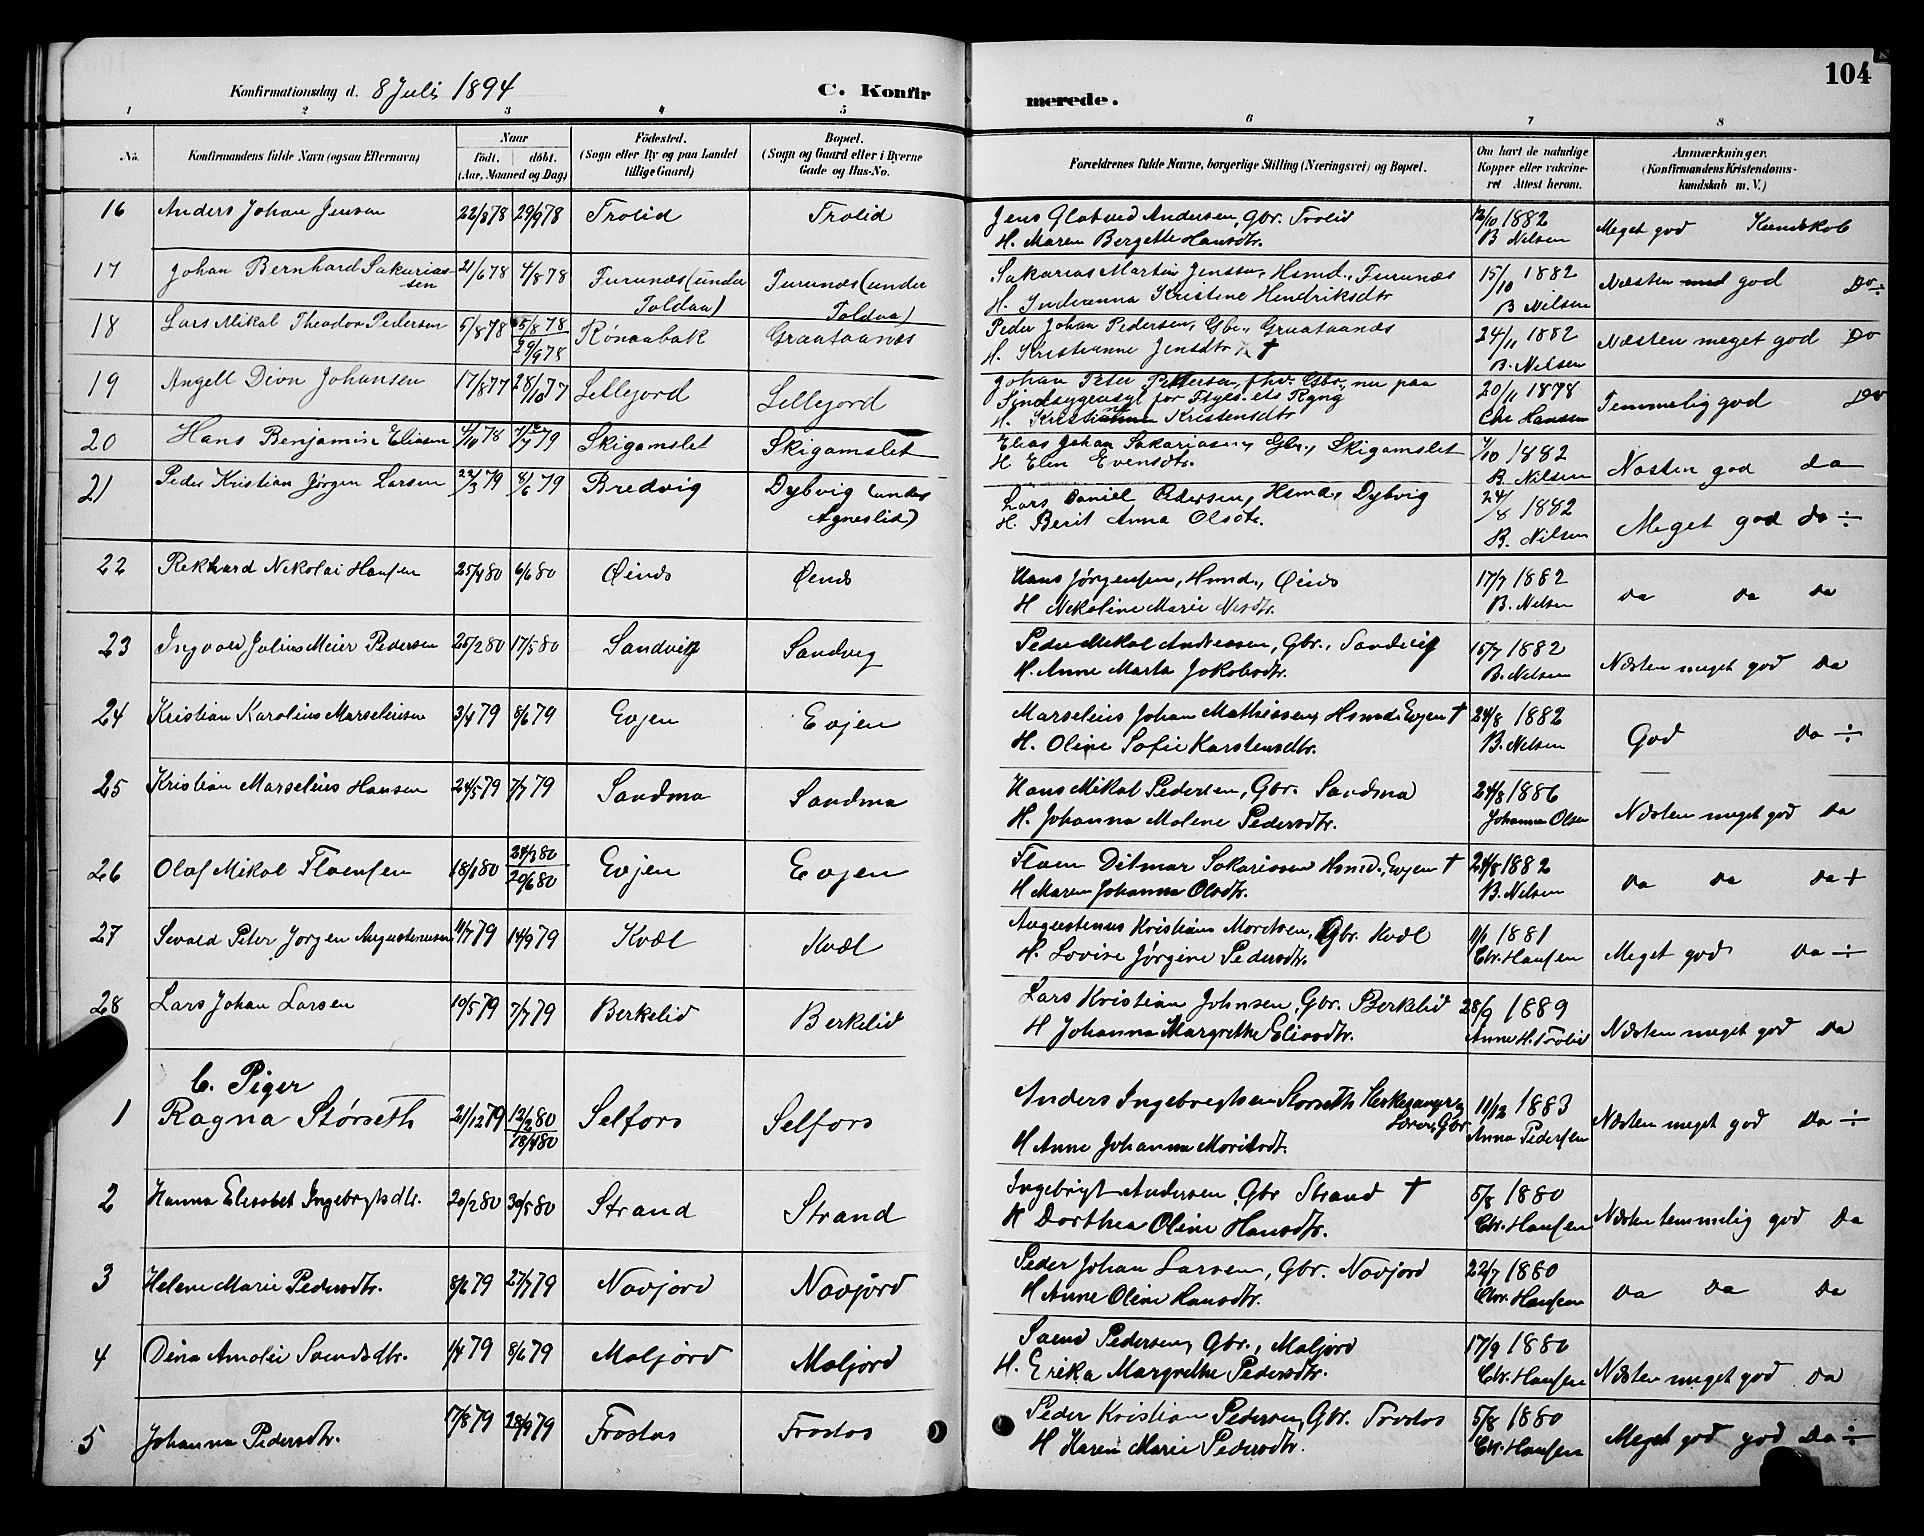 104
Konfirmationsdag d. 8 Juli 1894 C. Konfirmerede.
1 2 3 4 5 6 7 8
No. Konfirmandens fulde Navn (ogsaa Efternavn) Naar födt. döbt. (Aar, Maaned og Dag) Födested. (Sogn eller By og paa Landet tillige Gaard) Bopæl. (Sogn og Gaard eller i Byerne Gade og Hus-No. Forældrenes fulde Navne, borgerlige Stilling (Næringsvei) og Bopæl. Om havt de naturlige Kopper eller vakcineret Attest herom. Anmærkninger. (Konfirmandens Kristendomskundskab m. V.)
16 Anders Johan Jensen 22/8 78 29/9 78 Trolid Trolid Jens Glatved Andersen, Gbr. Trolid 12/10 1882 Meget god Kundskab
H. Maren Bergette Hansdtr. B Nilsen
17 Johan Bernhard Sakariassen 21/6 78 4/8 78 Furunæs (under Toldaa) Furunæs (under Toldaa) Sakarias Martin Jensen, Hsmd., Furunæs 15/10 1882 Næsten god Do ÷
H. Inderanna Kristine Hendriksdtr B Nilsen
18 Lars Mikal Theodor Pedersen 5/8 78 5/8 78 29/9 78 Rønaabak Graataanæs Peder Johan Pedersen, Gbr., Graataanæs 24/11 1882 Næsten meget god Do
H. Kristianne Jensdtr † B. Nilsen
19 Angell Dion Johansen 17/8 77 28/10 77 Lillejord Lillejord Johan Peter Pettersen, fhv. Gbr., nu paa 20/11 1878 Temmelig god Do
Sindsygeasyl for Rgng Chr Hansen
H. Kristensdtr
20 Hans Benjamin Eliasen 4/10 78 79 Skigamslet Skigamslet Elias Johan Sakariasen, Gbr., Skigamslet 7/10 1882 Næsten god da
H Elen Evensdtr. B. Nilsen
21 Peder Kristian Jørgen Larsen 22/3 79 8/6 79 Bredvig Dybvig (under Agneslid) Lars Daniel Pedersen, Hsmd., Dybvig 24/8 1882 Meget god do ÷
H. Berit Anna Olsdtr. B. Nilsen
22 Rekhard Nikolai Hansen 25/4 80 6/6 80 Øinds Øinds Hans Jørgensen, Hsmd., Øinds 17/7 1882 da da da
H Nikoline Marie Nilsdtr. B. Nilsen
23 Ingvald Julius Meier Pedersen 25/2 80 17/5 80 Sandvig Sandvig Peder Mikal Andreasen, Gbr., Sandvig 15/7 1882 Næsten meget god da
H. Anne Marta Jakobsdtr. B. Nilsen
24 Kristian Karolius Marseliusen 3/4 79 8/6 79 Evjen Evjen Marselius Johan Mathiasen, Hsmd. Evjen † 24/8 1882 God da ÷
H. Oline Sofie Karstensdtr. B. Nilsen
25 Kristian Marselius Hansen 24/5 79 7/7 79 Sandmo Sandmo Hans Mikal Pedersen, Gbr. Sandmo 24/8 1886 Næsten meget god da
H. Johanna Molene Pedersdtr. Johanna Olsen
26 Olaf Mikal Floensen 18/1 80 24/3 80 20/6 80 Evjen Evjen Floen Ditmar Sakariasen Hsmd., Evjen † 24/8 1882 da da da +
H Maren Johanna Olsdtr. B. Nilsen
27 Sevald Peter Jørgen Augustinusen 11/7 79 14/9 79 Kvæl Kvæl Augustinus Kristian Mortsen, Gbr. Kvæl 11/1 1881 Meget god da ÷
H. Lovise Jørgine Pedersdtr. Chr. Hansen
28 Lars Johan Larsen 10/5 79 7/7 79 Berkelid Berkelid Lars Kristian Johnsen, Gbr. Berkelid 28/9 1889 Næsten meget god da
H Johanna Margrethe Eliasdtr. Anne H. Trolid
b. Piger
1 Ragna Størseth 21/12 79 12/2 80 18/4 80 Selfors Selfors Anders Ingebregtsen Storseth Kirkesanger og Gbr 11/12 1883 Næsten meget god da ÷
H Anne Johanna Moritsdtr. Anna Pedersen
2 Hanna Elisabet Ingebrigtsdtr. 20/2 80 30/5 80 Strand Strand Ingebrigt Andersen, Gbr Strand † 5/8 1880 Næsten temmelig god da
H Dorthea Oline Hansdtr. Chr. Hansen
3 Helene Marie Pedersdtr. 8/6 79 27/7 79 Navjord Navjord Peder Johan Larsen, Gbr. Navjord 22/7 1880 da da da
H Anne Oline Hansdtr. Chr. Hansen
4 Dina Amalie Svendsdtr. 1/4 79 8/6 79 Maljord Maljord Svend Pedersen, Gbr., Maljord 17/9 1880 Næsten meget god da
H. Erika Margrethe Pedersdtr. Chr. Hansen
5 Johanna Pedersdtr. 17/8 79 28/9 79 Frostos Frostos Peder Kristian Pedersen, Gbr. Frostos 5/8 1880 Meget god god da ÷
H Karen Marie Pedersdtr. Chr. Hansen